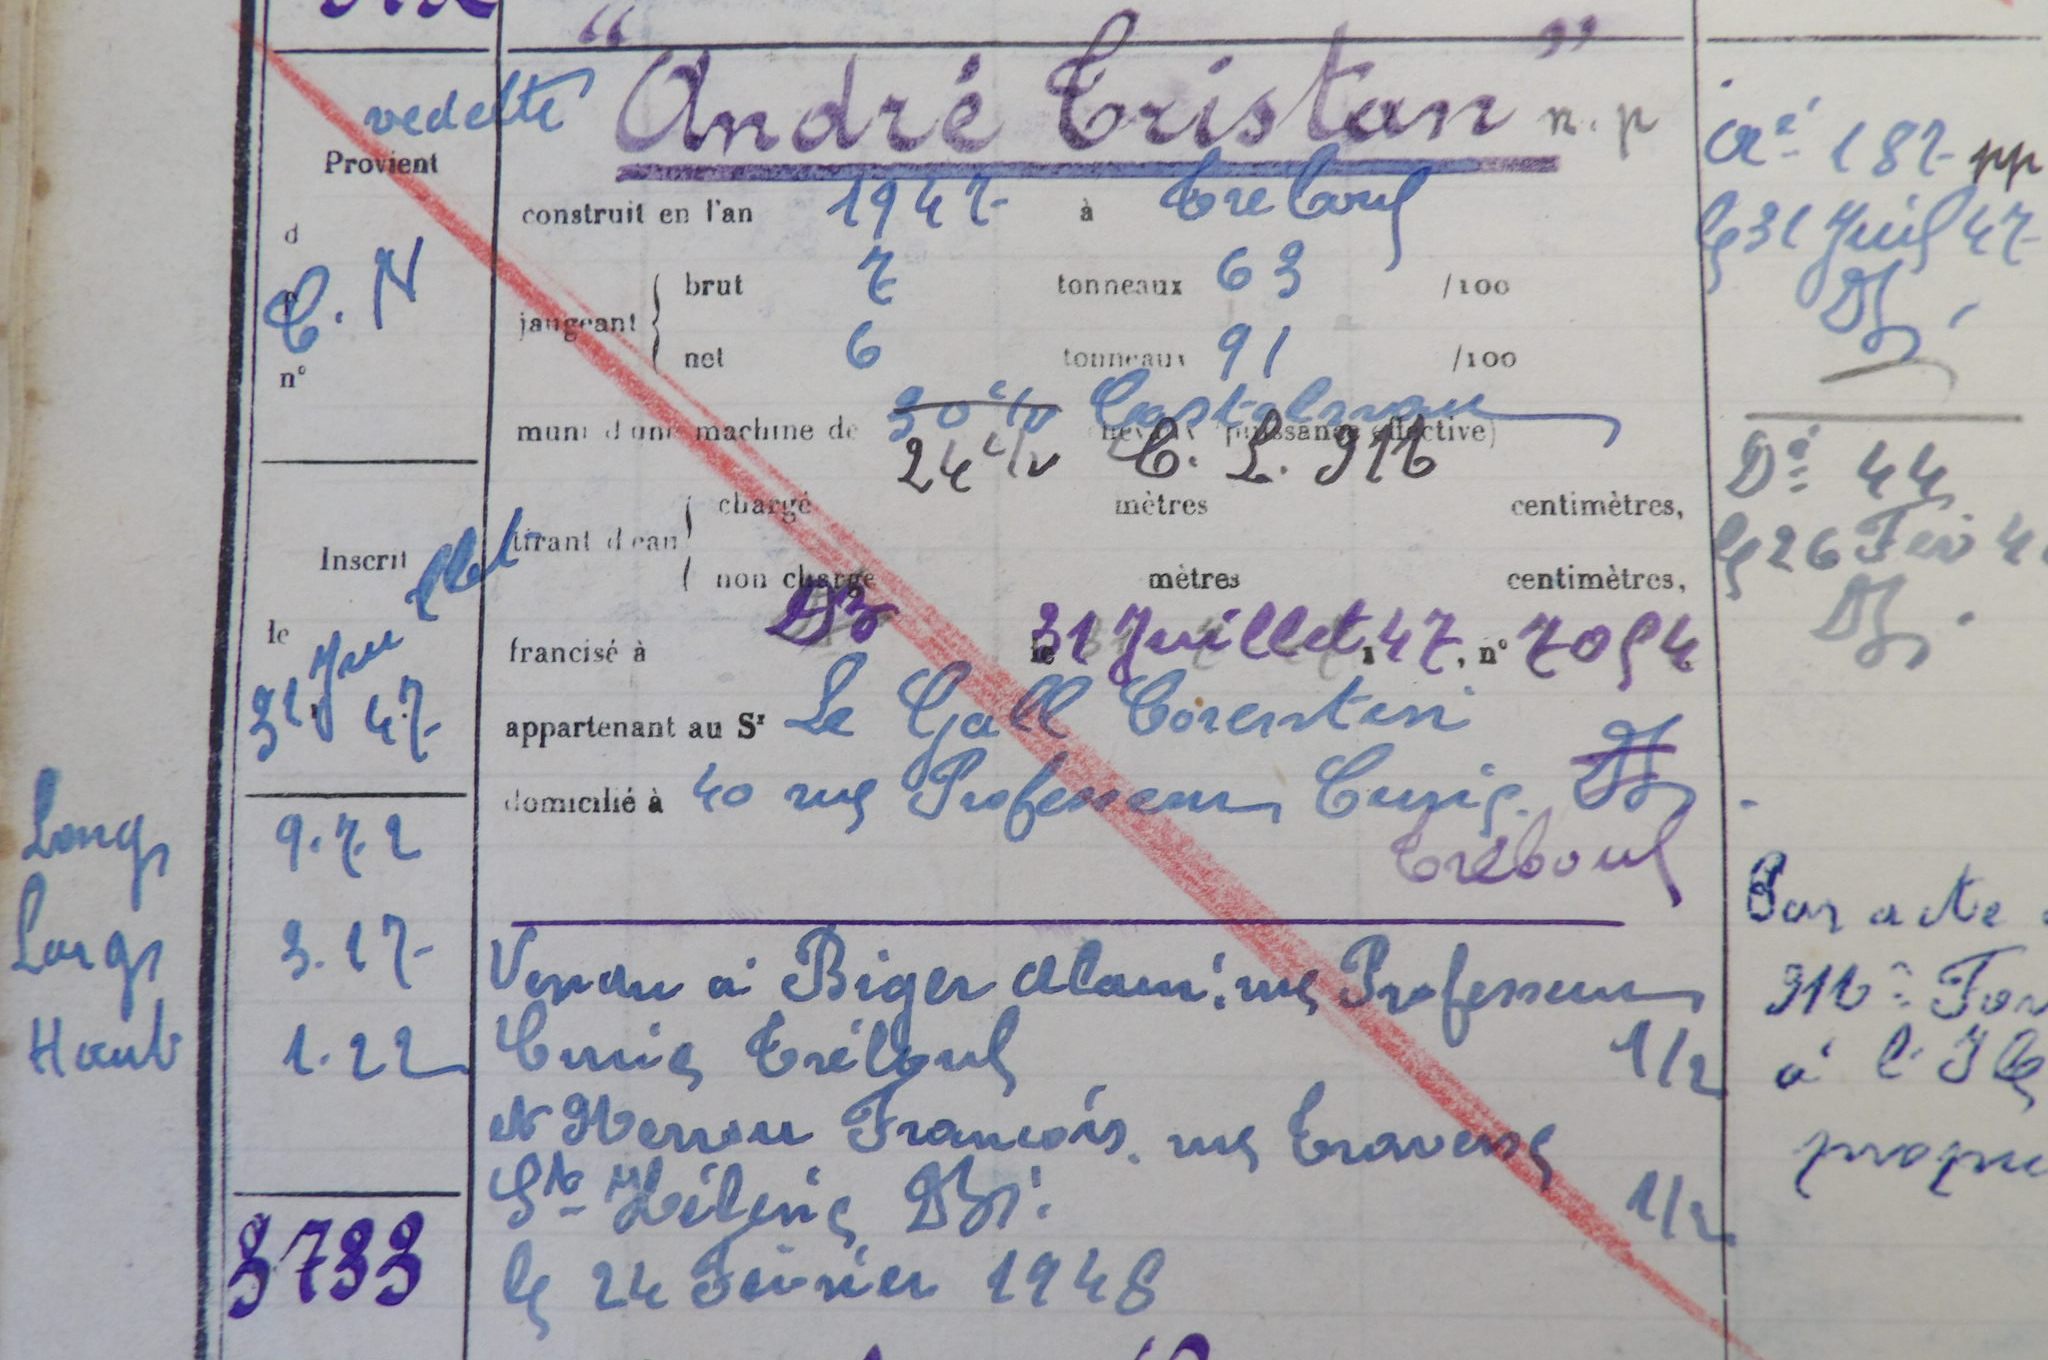 vedette "André Tristan" n.p
Provient
d
C. N
n°
construit en l'an 1947 à Treboul
jaugeant brut 7 tonneaux 63 /100
net 6 tonneaux 91 /100
muni d'une machine de 30 c/v Castelnau chevaux (puissance effective)
24 c/v C. L. M
tirant d'eau chargé mètres centimètres,
non chargé mètres centimètres,
Inscrit
le
31 47
francisé à Dz le 31 Juillet 1947, n° 7054
appartenant au Sr Le Gall Corentin
domicilié à 40 rue Professeur Curie. Dz
Tréboul
Long 9.72
Larg 3.17
Haut 1.22
3733
Vendu à Biger Alain: rue Professeur
Curie Tréboul 1/2
et Herrou François. rue Traverse
Ste Hélène Dz: 1/2
le 24 Février 1948
187 pp
le 31 Juil 47
Dz
44
le 26 Fév 4
Dz.
Par acte
Me
à l'Ile